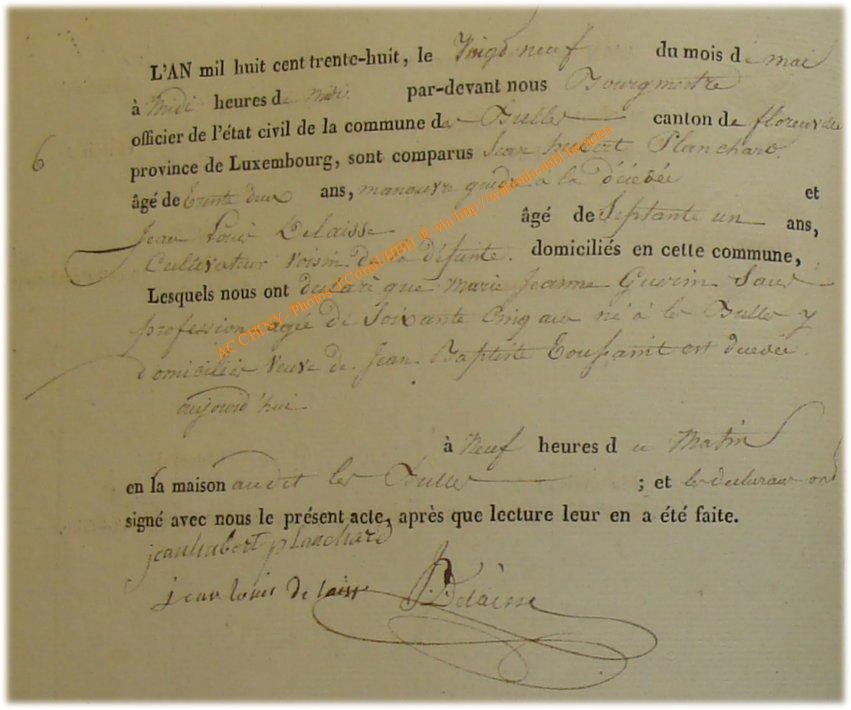 L'AN mil huit cent trente-huit, le Vingt neuf du mois de mai
à Midi heures de Midi par-devant nous Bourgmestre
officier de l'état civil de la commune des Bulles canton de florenville
province de Luxembourg, sont comparus Jean hubert Planchard
6
âgé de trente deux ans, manœuvre à la décédée et
Jean Louis Delaisse âgé de Septante un ans,
Cultivateur Voisin de la défunte. domiciliés en cette commune,
Lesquels nous ont declaré que marie Jeanne Guerin Sans
profession agée de Soixante Cinq ans né à les Bulles y
domiciliée Veuve de Jean Baptiste Toussaint est décedée
aujourd'hui
à Neuf heures du Matin
en la maison audit les Bulles ; et les declarans ont
signé avec nous le présent acte, après que lecture leur en a été faite.
jeanhubert planchard
jean louis De laisse Delaisse
AC CHINY - Photos J.Conrd HBH @ via http://wikibulle-wild.